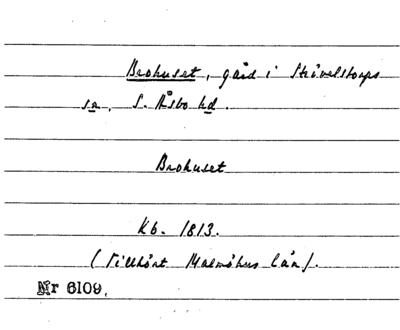 Brohuset, gård i Strövelstorps
sn, S. Åsbo hd.
Brohuset
Kb. 1813.
(Tillhört Malmöhus län).
Nr 6109.